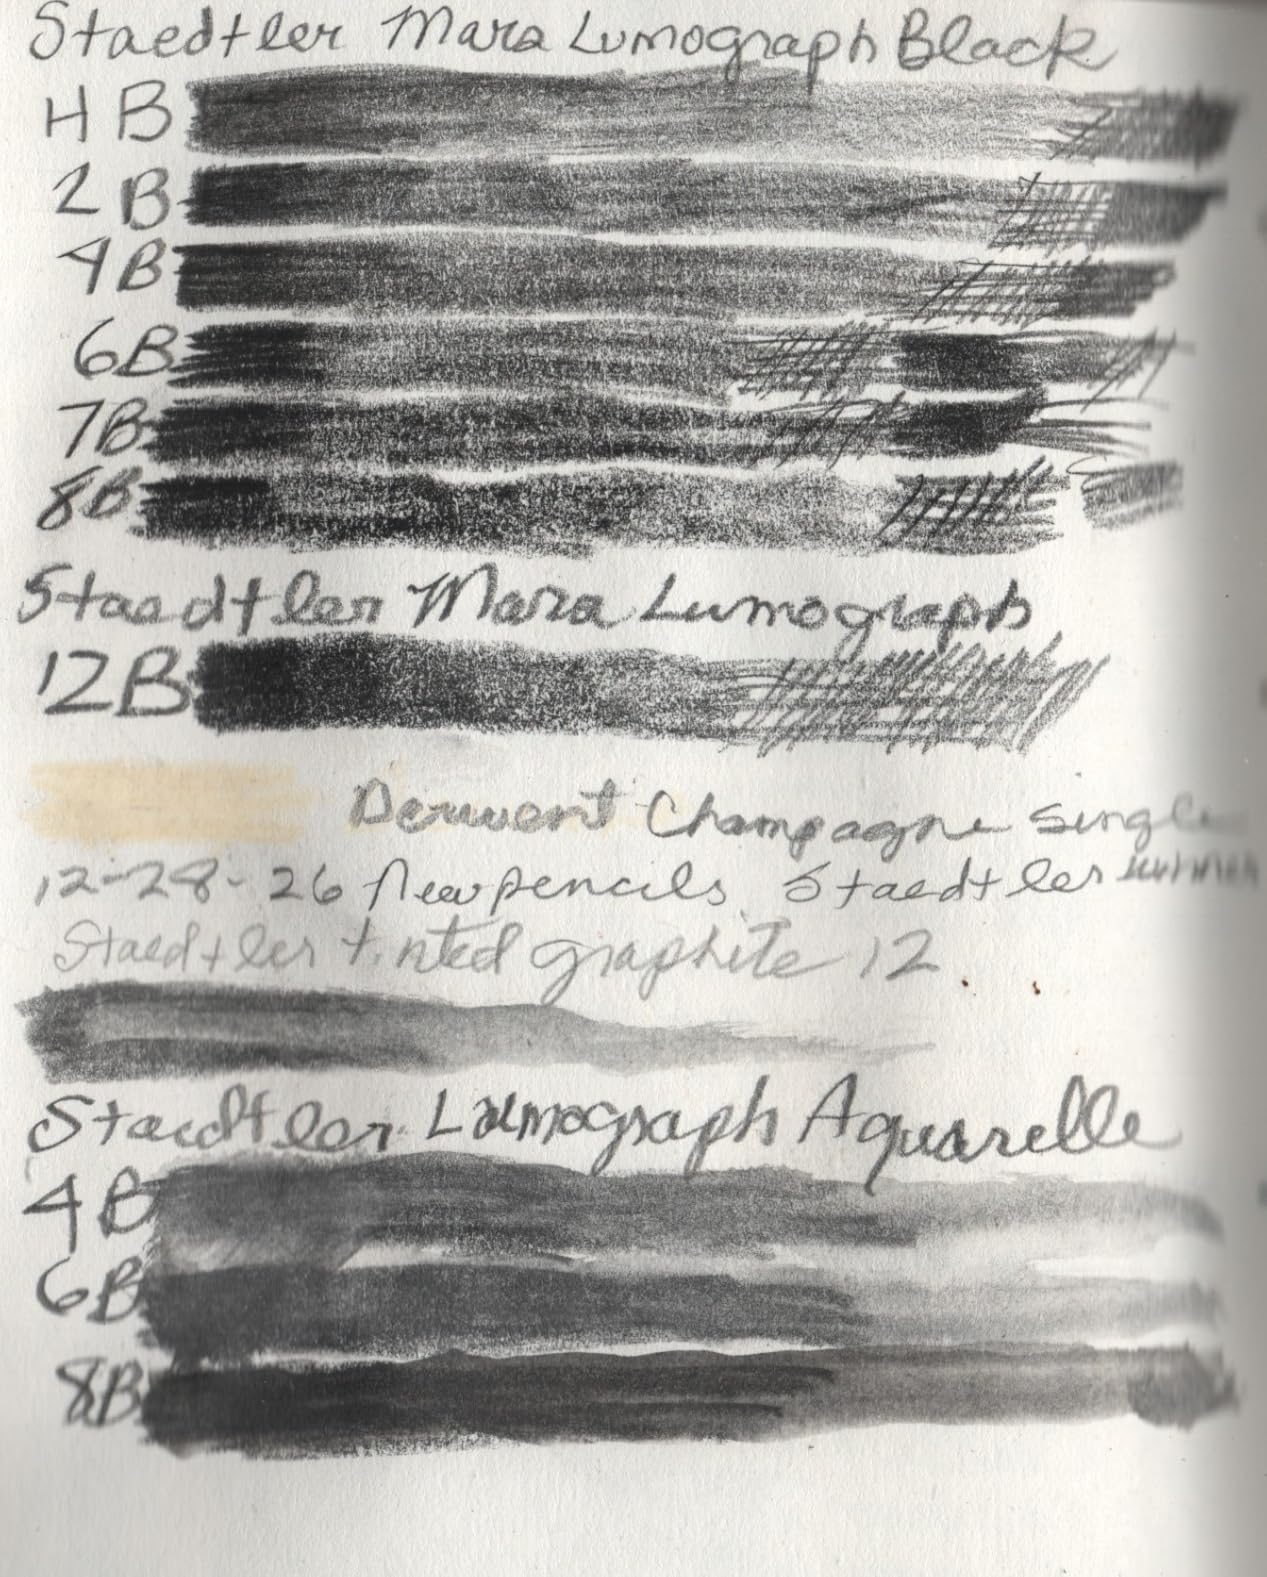 Staedtler Mars Lumograph Black
HB
2B
4B
6B
7B
8B
Staedtler Mars Lumograph
12B
Derwent Champagne Single
12-28-26 New pencils Staedtler
Staedtler tinted graphite 12
Staedtler Lumograph Aquarelle
4B
6B
8B